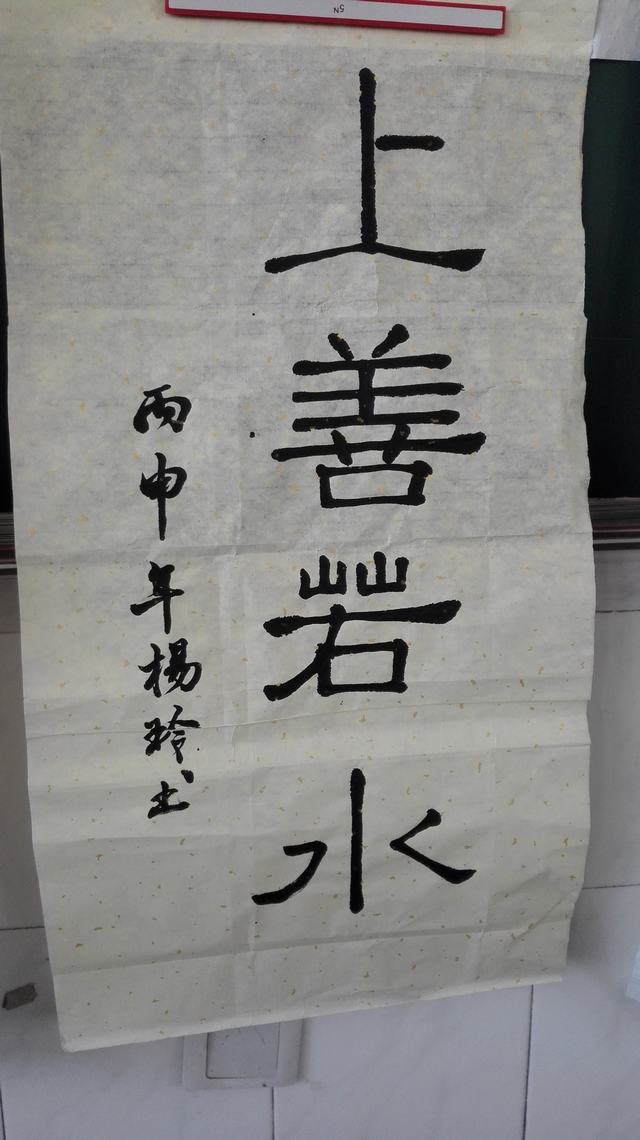 上善若水
丙申年楊玲书